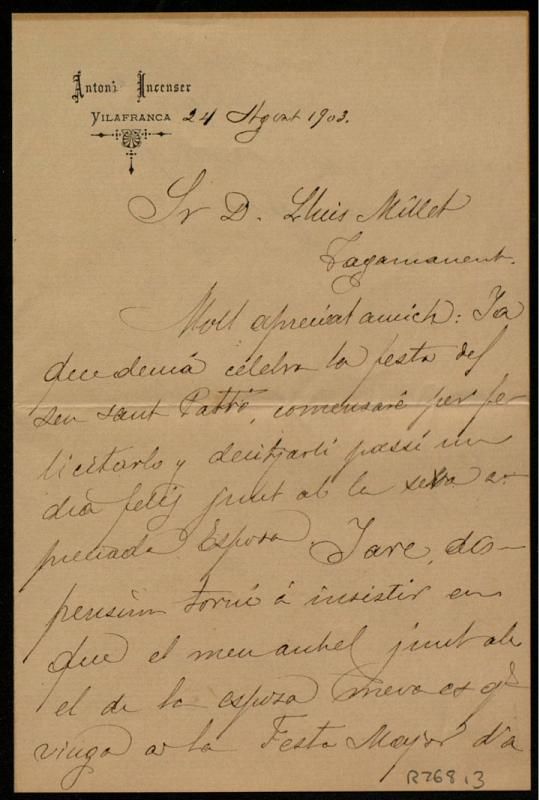 Antoni Incenser
VILAFRANCA 24 Agost 1903.
Sr D. Lluis Millet
Tagamanent.
Molt apreciat amich: Ja
que demá celebra la festa del
seu sant Patró, comensaré per fe-
licitarlo y desitjarli passi un
dia felis junt ab la seva a-
preciada Esposa. Y are, dis-
pensim torni á insistir en
que el meu anhel junt ab
el de la esposa meva es qe
vinga a la Festa Major d'a
R768.3